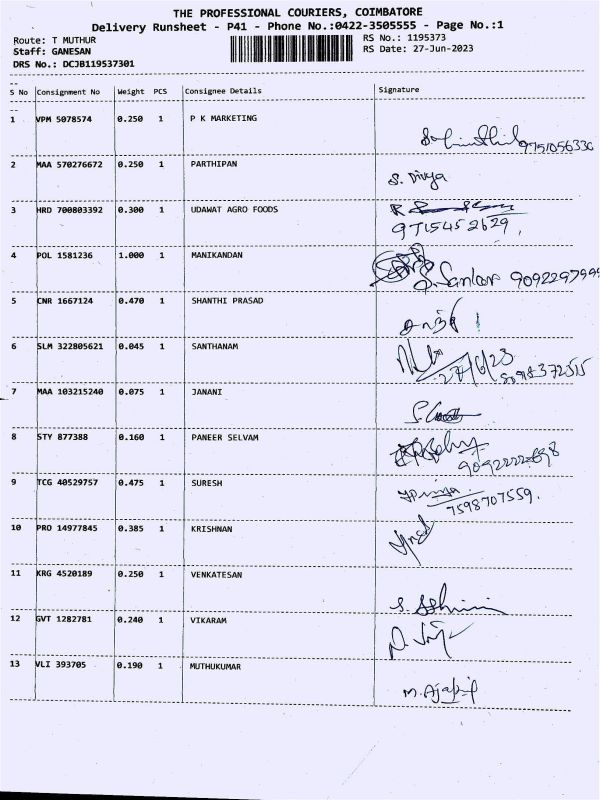 THE PROFESSIONAL COURIERS, COIMBATORE
Delivery Runsheet - P41 - Phone No.:0422-3505555 - Page No.:1
Route: T MUTHUR
RS No.: 1195373
Staff: GANESAN
RS Date: 27-Jun-2023
DRS No.: DCJB119537301
S No Consignment No Weight PCS Consignee Details Signature
1 VPM 5078574 0.250 1 P K MARKETING
2 MAA 570276672 0.250 1 PARTHIPAN S. Divya
3 HRD 700803392 0.300 1 UDAWAT AGRO FOODS
9715452629,
4 POL 1581236 1.000 1 MANIKANDAN
5 CNR 1667124 0.470 1 SHANTHI PRASAD
6 SLM 322805621 0.045 1 SANTHANAM
27/6/23
7 MAA 103215240 0.075 1 JANANI
8 STY 877388 0.160 1 PANEER SELVAM
9 TCG 40529757 0.475 1 SURESH
7598707559.
10 PRO 14977845 0.385 1 KRISHNAN
11 KRG 4520189 0.250 1 VENKATESAN
12 GVT 1282781 0.240 1 VIKARAM
13 VLI 393705 0.190 1 MUTHUKUMAR